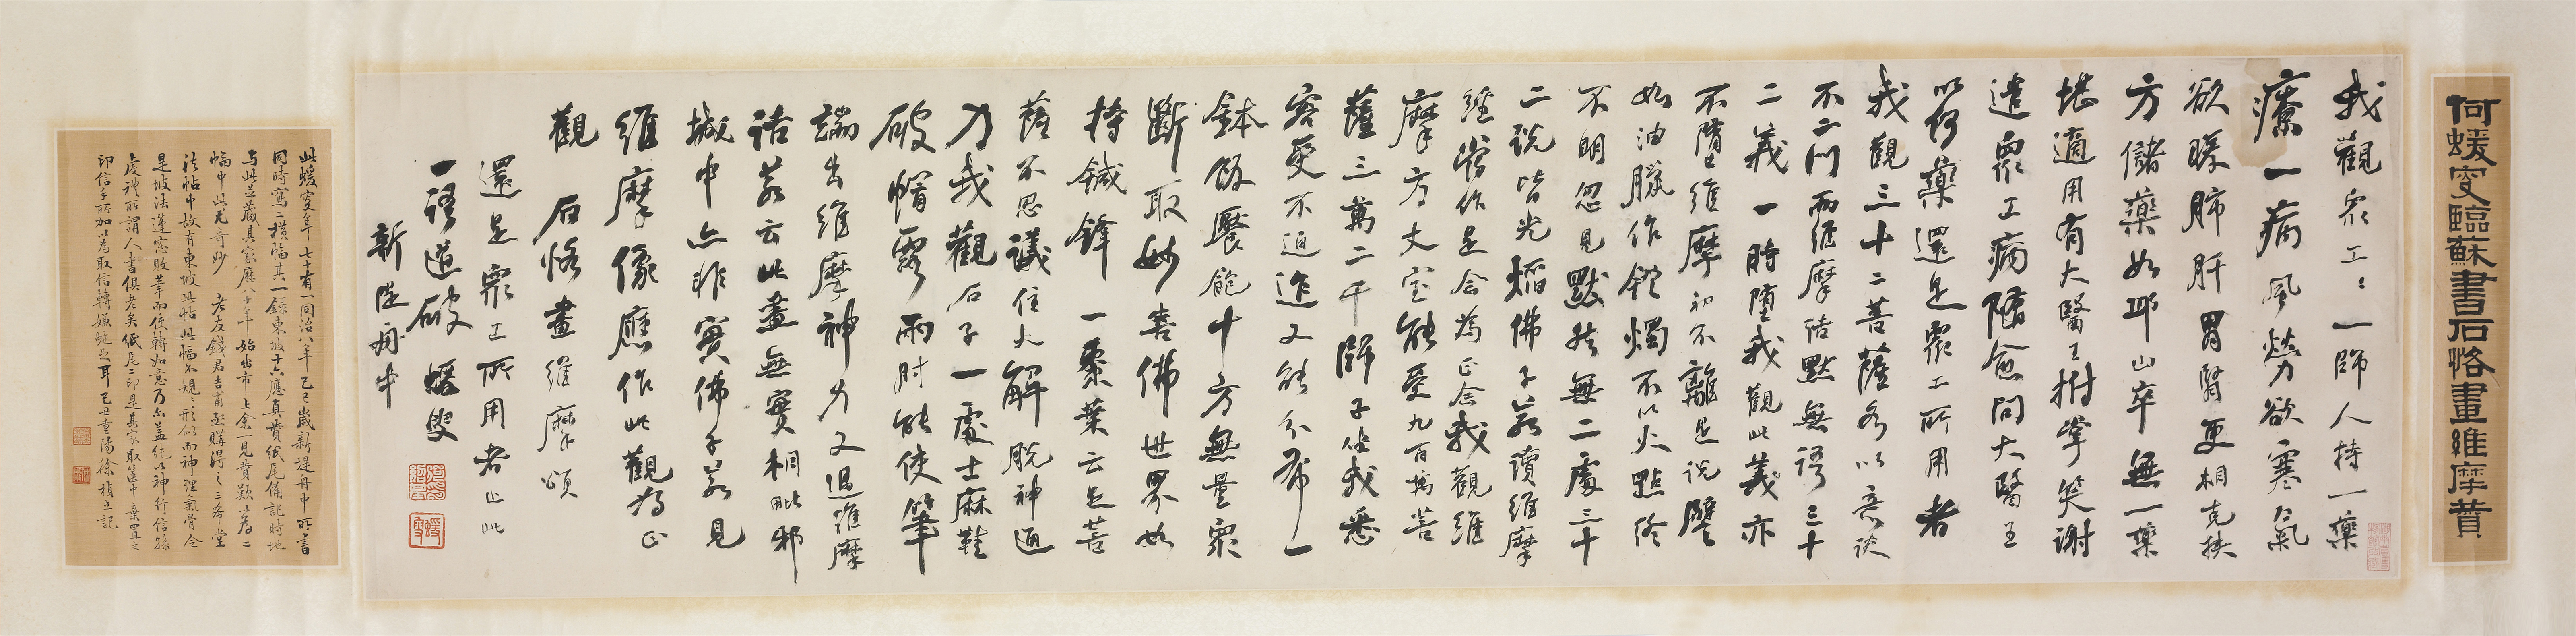 何蝯叟臨蘇書石恪畫維摩贊
我觀眾工〻一師人持一藥
療一病風勞欲寒氣
欲暖肺肝胃腎更相克挾
方儲藥如邱山卒無一藥
堪適用有大醫王拊掌笑謝
遣眾工病隨愈問大醫王
以何藥還是眾工所用者
我觀三十二菩薩各以意談
不二門而維摩詰默無語三十
二義一時墮我觀此義亦
不墮維摩初不離是說譬
如油臘作燈燭不以火點終
不明忽見默然無二處三十
二說皆光焰佛子若讀維摩
經當作是念為正念我觀維
摩方丈室能受九百萬菩
薩三萬二千師子坐我悉
容受不迫迮又能分布一
鉢飯饜飽十方無量眾
斷取妙喜佛世界如
持鍼鋒一棗葉云是菩
薩不思議住大解脫神通
力我觀石子一處士麻鞋
破帽露兩肘能使筆
端出維摩神力又過維摩
詰若云此畫無實相毗邪
城中亦非實佛子若見
維摩像應作此觀為正
觀 石恪畫維摩頌
還是眾工所用者止此
一語道破 蝯叟
新隄舟中
此蝯叟年七十有一同治八年己巳歲新堤舟中所書
同時寫二橫幅其一錄東坡十六應真贊紙尾備記時地
与此並藏其家歷八十年始出市上余一見贊歎以為二
幅中此尤奇妙 老友錢君吉甫亟購得之三希堂
法帖中故有東坡此帖此幅不規〻形似而神理氣骨全
是坡法蓬窓敗筆而使轉如意乃尔蓋純以神行信孫
虔禮所謂人書俱老矣紙尾二印是其家取篋中棄置之
印信手所加以為取信轉嫌蛇足耳己丑重陽徐楨立記